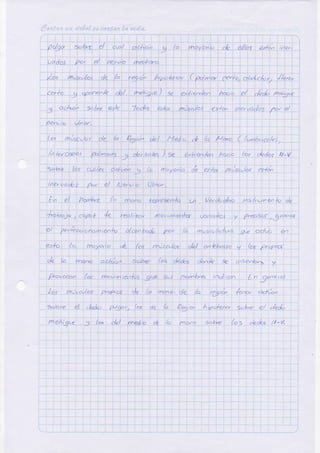 pulgar sobre el cual actúan y la mayoría de ellos están iner-
vados por el nervio mediano.
Los músculos de la región hipotenar (palmar corto, abductor, flexor
corto y oponente del meñique) se extienden hacia el dedo meñique
y actúan sobre este. Todos estos músculos están inervados por el
nervio ulnar.
Los músculos de la Región del Medio de la Mano (lumbricales,
interóseos palmares y dorsales) se extienden hacia los dedos II-V
sobre los cuales actúan y la mayoría de estos músculos están
inervados por el Nervio Ulnar.
En el hombre la mano representa un verdadero instrumento de
trabajo, capaz de realizar movimientos variados y precisos, gracias
al perfeccionamiento alcanzado por la musculatura que actúa en
esta. La mayoría de los músculos del antebrazo y los propios
de la mano actúan sobre los dedos donde se insertan y
provocan los movimientos que sus nombres indican. En general
los músculos propios de la mano de la región tenar actúan
sobre el dedo pulgar, los de la Región hipotenar sobre el dedo
meñique y los del medio de la mano sobre los dedos II-V.